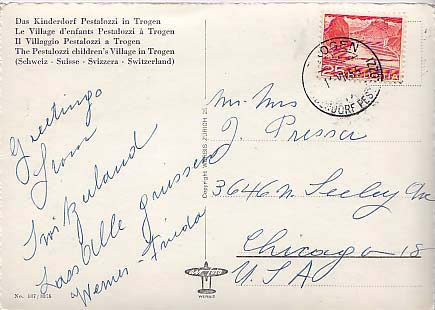 Das Kinderdorf Pestalozzi in Trogen
Le Village d'enfants Pestalozzi à Trogen
Il Villaggio Pestalozzi a Trogen
The Pestalozzi children's Village in Trogen
(Schweiz - Suisse - Svizzera - Switzerland)
Greetings
from
Switzerland
Lass Alle grüssen
Werner - Frieda
No. 107/
Copyright WERBIS ZURICH 25
WERBIS
TROGEN
KINDERDORF PES
25
Mr. Mrs
J. Presser
3646 N. Seeley Av
Chicago 18
U.S.A